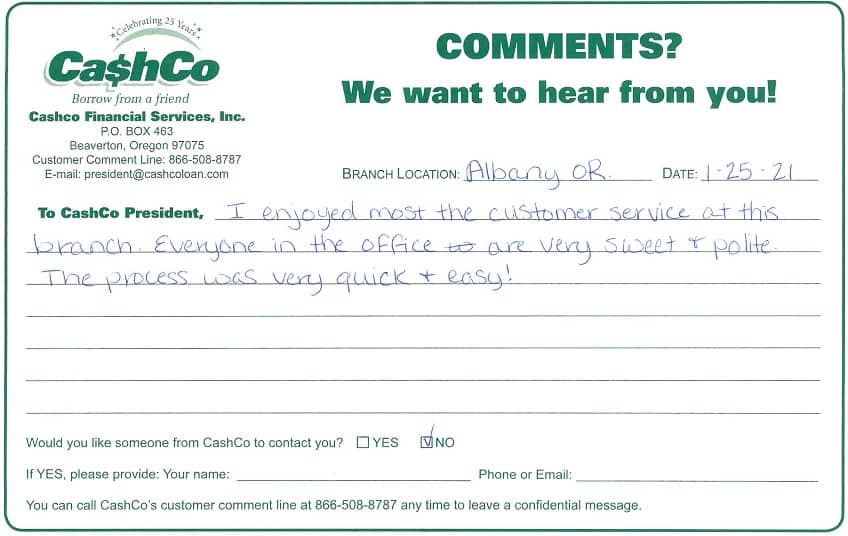 Celebrating 25 Years
Ca$hCo
Borrow from a friend
Cashco Financial Services, Inc.
P.O. BOX 463
Beaverton, Oregon 97075
Customer Comment Line: 866-508-8787
E-mail: president@cashcoloan.com
COMMENTS?
We want to hear from you!
BRANCH LOCATION: Albany OR. DATE: 1-25-21
To CashCo President, I enjoyed most the customer service at this
branch. Everyone in the office to are very sweet + polite.
The process was very quick + easy!
Would you like someone from CashCo to contact you? YES NO
If YES, please provide: Your name: Phone or Email:
You can call CashCo's customer comment line at 866-508-8787 any time to leave a confidential message.